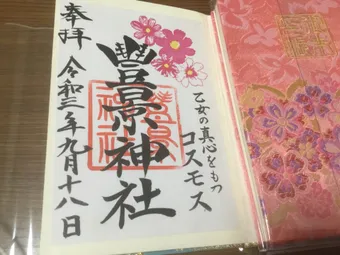 奉拝
令和三年九月十八日
豐景神社
乙女の真心をもつ
コスモス